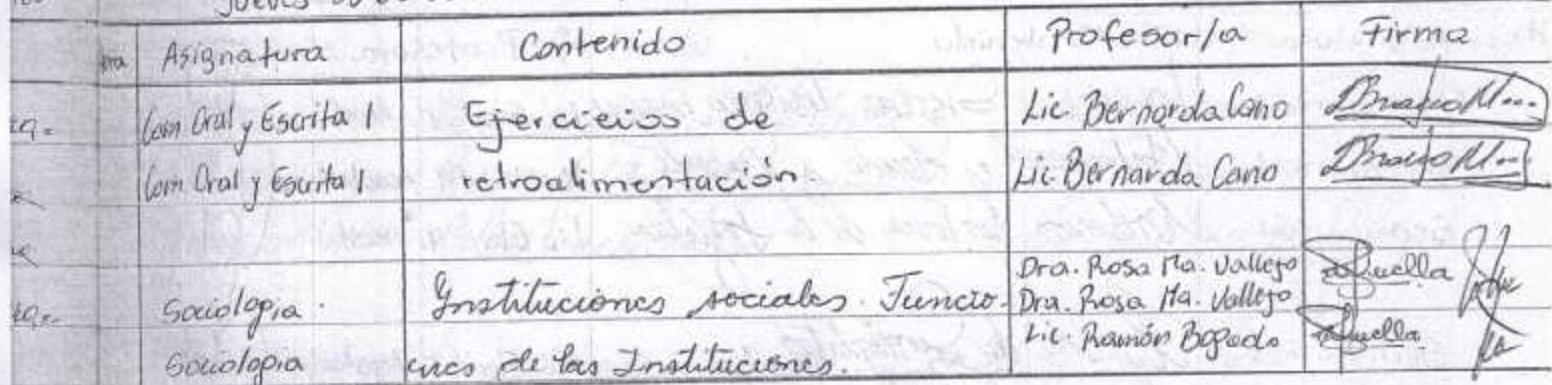 Jueves
Asignatura Contenido Profesor/a Firma
Com Oral y Escrita I Ejercicios de Lic. Bernarda Cano
Com Oral y Escrita I retroalimentación Lic. Bernarda Cano
Dra. Rosa Ma. Vallejo
Sociologia Instituciones sociales. Funcio- Dra. Rosa Ma. Vallejo
Sociologia nes de las Instituciones. Lic. Ramón